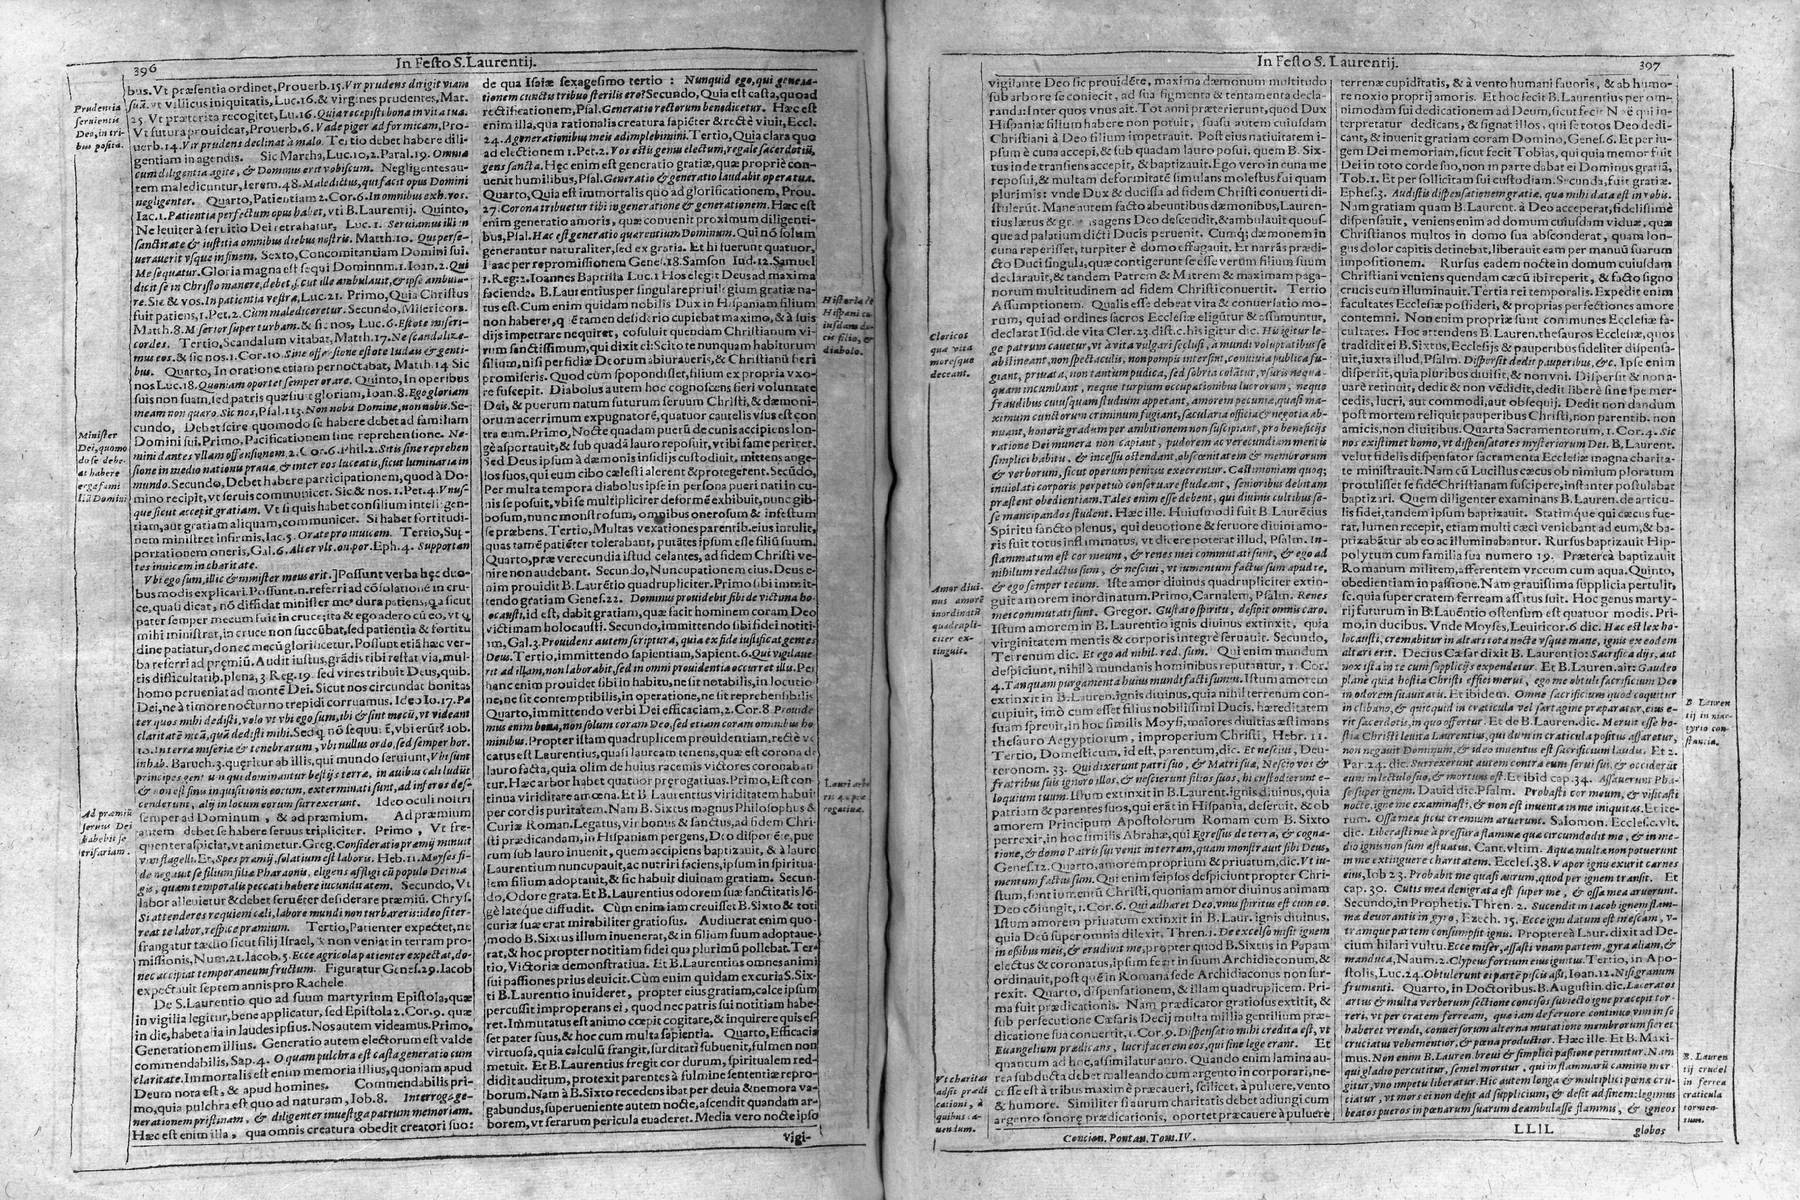 396
In Festo S. Laurentij.
bus. Vt præsentia ordinet, Prouerb. 15. Vir prudens dirigit viam
suã. vt villicus iniquitatis, Luc. 16. & virgines prudentes, Mat.
25. Vt præterita recogitet, Lu. 16. Quia recepisti bona in vita tua.
Vt futura prouideat, Prouerb. 6. Vade piger ad formicam, Pro-
uerb. 14. Vir prudens declinat à malo. Tertio debet habere dili-
gentiam in agendis. Sic Marcha, Luc. 10. 2. Paral. 19. Omnia
cum diligentia agite, & Dominus erit vobiscum. Negligentes au-
tem maledicuntur, Ierem. 48. Maledictus, qui facit opus Domini
negligenter. Quarto, Patientiam 2. Cor. 6. In omnibus exh. vos.
Iac. 1. Patientia perfectum opus habet, vti B. Laurentij. Quinto,
Ne leuiter à seruitio Dei retrahatur, Luc. 1. Seruiamus illi in
sanctitate & iustitia omnibus diebus nostris. Matth. 10. Qui perse-
uerauerit vsque in finem. Sexto, Concomitantiam Domini sui.
Me sequatur. Gloria magna est sequi Dominnm. 1. Ioan. 2. Qui
dicit se in Christo manere, debet, sicut ille ambulauit, & ipse ambula-
re. Sic & vos. In patientia vestra, Luc. 21. Primo, Quia Christus
fuit patiens, 1. Pet. 2. Cùm malediceretur. Secundo, Misericors.
Matth. 8. Misertor super turbam. & sic nos, Luc. 6. Estote miseri-
cordes. Tertio, Scandalum vitabat, Matth. 17. Ne scandalize-
mus eos. & sic nos. 1. Cor. 10. Sine offensione estote Iudæis & genti-
bus. Quarto, In oratione etiam pernoctabat, Matth. 14 Sic
nos Luc. 18. Quoniam oportet semper orare. Quinto, In operibus
suis non suam, sed patris quæsiuit gloriam, Ioan. 8. Ego gloriam
meam non quæro. Sic nos, Psal. 113. Non nobis Domine, non nobis. Se-
cundo, Debet scire quomodo se habere debet ad familiam
Domini sui. Primo, Pacificationem sine reprehensione. Ne-
mini dantes vllam offensionem. 2. Cor. 6. Phil. 2. Sitis sine reprehen
sione in medio nationis prauæ & inter eos luceatis, sicut luminaria in
mundo. Secundo, Debet habere participationem, quod à Do-
mino recipit, vt seruis communicet. Sic & nos. 1. Pet. 4. Vnus-
que sicut accepit gratiam. Vt si quis habet consilium intelligen-
tiam, aut gratiam aliquam, communicet. Si habet fortitudi-
nem ministret infirmis, Iac. 5. Orate pro inuicem. Tertio, Sup-
portationem oneris, Gal. 6. Alter vlt. on. por. Eph. 4. Supportan
tes inuicem in charitate.
Vbi ego sum, illic & minister meus erit.] Possunt verba hęc duo-
bus modis explicari. Possunt. n. referri ad cõsolationẽ in cru-
ce, quasi dicat, nõ diffidat minister me' dura patiens, qa sicut
pater semper mecum fuit in cruce, ita & ego adero cũ eo, vt q
mihi ministrat, in cruce non succũbat, sed patientia & fortitu
dine patiatur, donec mecũ glorificetur. Possunt etiã hæc ver-
ba referri ad pręmiũ. Audit iustus, grãdis tibi restat via, mul-
tis difficultatib. plena, 3. Reg. 19. sed vires tribuit Deus, quib.
homo perueniat ad montẽ Dei. Sicut nos circundat bonitas
Dei, ne à timore nocturno trepidi corruamus. Ideo Io. 17. Pa
ter quos mihi dedisti, volo vt vbi ego sum, ibi & sint mecũ, vt videant
claritatẽ meã, quã dedisti mihi. Sed q nõ sequũ: ẽ, vbi erũt? Iob.
10. In terra miseriæ & tenebrarum, vbi nullus ordo, sed semper hor.
inhab. Baruch. 3. quęritur ab illis, qui mundo seruiunt, Vbi sunt
principes gentium qui dominantur bestijs terræ, in auibus cæli ludũt
& non est finis inquisitionis eorum, exterminati sunt, ad inferos des-
cenderunt, alij in locum eorum surrexerunt. Ideo oculi nostri
semper ad Dominum, & ad præmium. Ad præmium
autem debet se habere seruus tripliciter. Primo, Vt fre-
quenter aspiciat, vt animetur. Greg. Consideratio præmij minuit
vim flagelli. Et, Spes præmij, solatium est laboris. Heb. 11. Moyses fi-
de negauit se filium filiæ Pharaonis, eligens affligi cũ populo Dei ma
gis, quam temporalis peccati habere iucunditatem. Secundo, Vt
labor alleuietur & debet feruẽter desiderare præmiũ. Chrys.
Si attenderes requiem cæli, labore mundi non turbareris: ideo si ter-
reat te labor, respice præmium. Tertio, Patienter expectet, ne
frangatur tædio sicut filij Israel, & non veniat in terram pro-
missionis, Num. 21. Iacob. 5. Ecce agricola patienter expectat, do-
nec accipiat temporaneum fructum. Figuratur Genes. 29. Iacob
expectauit septem annis pro Rachele.
De S. Laurentio quo ad suum martyrium Epistola, quæ
in vigilia legitur, bene applicatur, sed Epistola 2. Cor. 9. quæ
in die, habet alia in laudes ipsius. Nos autem videamus. Primo,
Generationem illius. Generatio autem electorum est valde
commendabilis, Sap. 4. O quam pulchra est casta generatio cum
claritate. Immortalis est enim memoria illius, quoniam apud
Deum nota est, & apud homines. Commendabilis pri-
mo, quia pulchra est quo ad naturam, Iob. 8. Interroga ge-
nerationem pristinam, & diligenter inuestiga patrum memoriam.
Hæc est enim illa, qua omnis creatura obedit creatori suo:
Prudentia
seruientis
Deo, in tri-
bus posita.
Minister
Dei, quomo
do se debe-
at habere
erga fami
liã Domini
Ad præmiũ
seruus Dei
habebit se
trifariam.
de qua Isaiæ sexagesimo tertio: Nunquid ego, qui genera-
tionem cunctis tribuo sterilis ero? Secundo, Quia est casta, quo ad
rectificationem, Psal. Generatio rectorum benedicetur. Hæc est
enim illa, qua rationalis creatura sapiẽter & rectè viuit, Eccl.
24. A generationibus meis adimplebimini. Tertio, Quia clara quo
ad electionem 1. Pet. 2. Vos estis genus electum, regale sacerdotiũ,
gens sancta. Hęc enim est generatio gratiæ, quæ propriè con-
uenit humilibus, Psal. Generatio & generatio laudabit opera tua.
Quarto, Quia est immortalis quo ad glorificationem, Prou.
27. Corona tribuetur tibi in generatione & generationem. Hæc est
enim generatio amoris, quæ conuenit proximum diligenti-
bus, Psal. Hæc est generatio quærentium Dominum. Qui nõ solum
generantur naturaliter, sed ex gratia. Et hi fuerunt quatuor,
Isaac per repromissionem Genes. 18. Samson Iud. 12. Samuel
1. Reg. 2. Ioannes Baptista Luc. 1 Hos elegit Deus ad maxima
facienda. B. Laurentius per singulare priuilegium gratiæ na-
tus est. Cum enim quidam nobilis Dux in Hispaniam filium
non haberet, quẽ tamen desiderio cupiebat maximo, & à suis
dijs impetrare nequiret, cõsuluit quendam Christianum vi-
rum sanctissimum, qui dixit ei: Scito te nunquam habiturum
filium, nisi perfidiæ Deorum abiuraueris, & Christianũ fieri
promiseris. Quod cùm spopondisset, filium ex propria vxo-
re suscepit. Diabolus autem hoc cognoscens fieri voluntate
Dei, & puerum natum futurum seruum Christi, & dæmoni-
orum acerrimum expugnatorẽ, quatuor cautelis vsus est con
tra eam. Primo, Nocte quadam puerũ de cunis accipiens lon-
gè asportauit, & sub quadã lauro reposuit, vt ibi fame periret.
Sed Deus ipsum à dæmonis insidijs custodiuit, mittens ange-
los suos, qui eum cibo cælesti alerent & protegerent. Secũdo,
Per multa tempora diabolus ipse in persona pueri nati in cu-
nis se posuit, vbi se multipliciter deformẽ exhibuit, nunc gib-
bosum, nunc monstrosum, omnibus onerosum & infestum
se præbens. Tertio, Multas vexationes parentib. eius intulit,
quas tamẽ patiẽter tolerabant, putãtes ipsum esse filiũ suum.
Quarto, præ verecundia istud celantes, ad fidem Christi ve-
nire non audebant. Secundo, Nuncupationem eius. Deus e-
nim prouidit B. Laurẽtio quadrupliciter. Primo sibi immit-
tendo gratiam Genes. 22. Dominus prouidebit sibi de victima ho-
locausti, id est, dabit gratiam, quæ facit hominem coram Deo
victimam holocausti. Secundo, immittendo sibi fidei notiti-
am, Gal. 3. Prouidens autem scriptura, quia ex fide iustificat gentes
Deus. Tertio, immittendo sapientiam, Sapient. 6. Qui vigilaue-
rit ad illam, non laborabit, sed in omni prouidentia occurret illis. Per
hanc enim prouidet sibi in habitu, ne sit notabilis, in locutio
ne, ne sit contemptibilis, in operatione, ne sit reprehensibilis
Quarto, immittendo verbi Dei efficaciam, 2. Cor. 8 Prouide
mus enim bona, non solum coram Deo, sed etiam coram omnibus ho
minibus. Propter istam quadruplicem prouidentiam, rectè vo
catus est Laurentius, quasi lauream tenens, quæ est corona de
lauro facta, quia olim de huius racemis victores coronaban
tur. Hæc arbor habet quatuor pręrogatiuas. Primo, Est con
tinua viriditate amœna. Et B Laurentius viriditatem habuit
per cordis puritatem. Nam B. Sixtus magnus Philosophus &
Curiæ Roman. Legatus, vir bonus & sanctus, ad fidem Chri-
sti prædicandam, in Hispaniam pergens, Deo disponẽte, pue
rum sub lauro inuenit, quem accipiens baptizauit, & à lauro
Laurentium nuncupauit, ac nutriri faciens, ipsum in spiritua-
lem filium adoptauit, & sic habuit diuinam gratiam. Secun-
do, Odore grata. Et B. Laurentius odorem suæ sanctitatis lõ-
gè lateque diffudit. Cùm enim creuisset B. Sixto & toti
curiæ suæ erat mirabiliter gratiosus. Audiuerat enim quo-
modo B. Sixtus illum inuenerat, & in filium suum adoptaue-
rat, & hoc propter notitiam fidei qua plurimũ pollebat. Ter-
tio, Victoriæ demonstratiua. Et B. Laurentius omnes animi
sui passiones prius deuicit. Cùm enim quidam ex curia S. Six-
ti B. Laurentio inuideret, propter eius gratiam, calce ipsum
percussit improperans ei, quod nec patris sui notitiam habe-
ret. Immutatus est animo cœpit cogitare, & inquirere quis es-
set pater suus, & hoc cum multa sapientia. Quarto, Efficacia
virtuosa, quia calculũ frangit, surditati subuenit, fulmen non
metuit. Et B. Laurentius fregit cor durum, spiritualem red-
didit auditum, protexit parentes à fulmine sententiæ repro-
borum. Nam à B. Sixto recedens ibat per deuia & nemora va-
gabundus, superueniente autem nocte, ascendit quandam ar-
borem, vt ferarum pericula euaderet. Media vero nocte ipso
vigi-
Lauri arbo
ris 4. præ
rogatiuæ.
In Festo S. Laurentij.
397
Clericos
qua vita
moresque
deceant.
Amor diui-
nus amorẽ
inordinatũ
quadrupli-
citer ex-
tinguit.
vigilante Deo sic prouidẽte, maxima dæmonum multitudo
sub arbore se coniecit, ad sua figmenta & tentamenta decla-
randa: Inter quos vnus ait. Tot anni præterierunt, quod Dux
Hispaniæ filium habere non potuit, suasu autem cuiusdam
Christiani à Deo filium impetrauit. Post eius natiuitatem i-
psum è cuna accepi, & sub quadam lauro posui, quem B. Six-
tus inde transiens accepit, & baptizauit. Ego vero in cuna me
reposui, & multam deformitatẽ simulans molestus fui quam
plurimis: vnde Dux & ducissa ad fidem Christi conuerti di-
stulerũt. Mane autem facto abeuntibus dæmonibus, Lauren-
tius lætus & gratias agens Deo descendit, & ambulauit quous-
que ad palatium dicti Ducis peruenit. Cumq; dæmonem in
cuna reperisset, turpiter è domo effugauit. Et narrãs prædi-
cto Duci singula, quæ contigerunt se esse verũ filium suum
declarauit, & tandem Patrem & Matrem & maximam paga-
norum multitudinem ad fidem Christi conuertit. Tertio
Assumptionem. Qualis esse debeat vita & conuersatio mo-
rum, qui ad ordines sacros Ecclesiæ eligũtur & assumuntur,
declarat Isid. de vita Cler. 23. dist. c. his igitur dic. His igitur le-
ge patrum cauetur, vt à vita vulgari seclusi, à mundi voluptatibus se
abstineant, non spectaculis, non pompis intersint, conuiuia publica fu-
giant, priuata, non tantum pudica, sed sobria colãtur, vsuris nequa-
quam incumbant, neque turpium occupationibus lucrorum, neque
fraudibus cuiusquam studium appetant, amorem pecuniæ, quasi ma-
ximum cunctorum criminum fugiant, sæcularia officia & negotia ab-
nuant, honoris gradum per ambitionem non suscipiant, pro beneficijs
ratione Dei munera non capiant, pudorem ac verecundiam mentis
simplici habitu, & incessu ostendant, obscœnitatem & membrorum
& verborum, sicut operum penitus execrentur. Castimoniam quoq;
inuiolati corporis perpetuò conseruare studeant, senioribus debitam
præstent obedientiam. Tales enim esse debent, qui diuinis cultibus se-
se mancipandos student. Hæc ille. Huiusmodi fuit B. Laurẽtius
Spiritu sancto plenus, qui deuotione & feruore diuini amo-
ris fuit totus inflammatus, vt dicere poterat illud, Psalm. In-
flammatum est cor meum, & renes mei commutati sunt, & ego ad
nihilum redactus sum, & nesciui, vt iumentum factus sum apud te,
& ego semper tecum. Iste amor diuinus quadrupliciter extin-
guit amorem inordinatum. Primo, Carnalem, Psalm. Renes
mei commutati sunt. Gregor. Gustato spiritu, desipit omnis caro.
Istum amorem in B. Laurentio ignis diuinus extinxit, quia
virginitatem mentis & corporis integrè seruauit. Secundo,
Terrenum dic. Et ego ad nihil. red. sum. Qui enim mundum
despiciunt, nihil à mundanis hominibus reputantur, 1. Cor.
4. Tanquam purgamenta huius mundi facti sumus. Istum amorem
extinxit in B. Lauren. ignis diuinus, quia nihil terrenum con-
cupiuit, imò cum esset filius nobilissimi Ducis. hæreditatem
suam spreuit, in hoc similis Moysi, maiores diuitias æstimans
thesauro Aegyptiorum, improperium Christi, Hebr. 11.
Tertio, Domesticum, id est, parentum, dic. Et nesciui, Deu-
teronom. 33. Qui dixerunt patri suo, & Matri suæ, Nescio vos &
fratribus suis ignoro illos, & nescierunt filios suos, hi custodierunt e-
loquium tuum. Istum extinxit in B. Laurent. ignis diuinus, quia
patriam & parentes suos, qui erãt in Hispania, deseruit, & ob
amorem Principum Apostolorum Romam cum B. Sixto
perrexit, in hoc similis Abrahæ, qui Egressus de terra, & cogna-
tione, & domo Patris sui venit in terram, quam monstrauit sibi Deus,
Genes. 12. Quarto, amorem proprium & priuatum, dic. Vt iu-
mentum factus sum. Qui enim seipsos despiciunt propter Chri-
stum, sunt iumentũ Christi, quoniam amor diuinus animam
Deo cõiungit, 1. Cor. 6. Qui adhæret Deo, vnus spiritus est cum eo.
Istum amorem priuatum extinxit in B. Laur. ignis diuinus,
quia Deũ super omnia dilexit. Thren. 1. De excelso misit ignem
in ossibus meis, & erudiuit me, propter quod B. Sixtus in Papam
electus & coronatus, ipsum fecit in suum Archidiaconum, &
ordinauit, post quẽ in Romana sede Archidiaconus non sur-
rexit. Quarto, dispensationem, & illam quadruplicem. Pri-
ma fuit prædicationis. Nam prædicator gratiosus extitit, &
sub persecutione Cæsaris Decij multa millia gentilium præ-
dicatione sua conuertit, 1. Cor. 9. Dispensatio mihi credita est, vt
Euangelium prædicans, lucrifacerem eos, qui sine lege erant. Et
quantum ad hoc, assimilatur auro. Quando enim lamina au-
rea subducta debet malleando cum argento in corporari, ne-
cesse est à tribus maximè præcaueri, scilicet, à puluere, vento
& humore. Similiter si aurum charitatis debet adiungi cum
argento sonoræ prædicationis, oportet præcauere à puluere
terrenæ cupiditatis, & à vento humani fauoris, & ab humo-
re noxio proprij amoris. Et hoc fecit B. Laurentius per om-
nimodam sui dedicationem ad Deum, sicut fecit Noë qui in-
terpretatur dedicans, & signat illos, qui se totos Deo dedi-
cant, & inuenit gratiam coram Domino, Genes. 6. Et per iu-
gem Dei memoriam, sicut fecit Tobias, qui quia memor fuit
Dei in toto corde suo, non in parte dabat ei Dominus gratiã,
Tob. 1. Et per sollicitam sui custodiam. Secunda, fuit gratiæ.
Ephes. 3. Audistis dispensationem gratiæ, quæ mihi data est in vobis.
Nam gratiam quam B. Laurent. à Deo acceperat, fidelissimè
dispensauit, veniens enim ad domum cuiusdam viduæ, quæ
Christianos multos in domo sua absconderat, quam lon-
gus dolor capitis detinebat, liberauit eam per manuũ suarum
impositionem. Rursus eadem nocte in domum cuiusdam
Christiani veniens quendam cæcũ ibi reperit, & facto signo
crucis eum illuminauit. Tertia rei temporalis. Expedit enim
facultates Ecclesiæ possideri, & proprias perfectionis amore
contemni. Non enim propriæ sunt communes Ecclesiæ fa-
cultates. Hoc attendens B. Lauren. thesauros Ecclesiæ, quos
tradidit ei B. Sixtus, Ecclesijs & pauperibus fideliter dispensa-
uit, iuxta illud, Psalm. Dispersit dedit pauperibus, &c. Ipse enim
dispersit, quia pluribus diuisit, & non vni. Dispersit & non a-
uarè retinuit, dedit & non vẽdidit, dedit liberè sine spe mer-
cedis, lucri, aut commodi, aut obsequij. Dedit non dandum
post mortem reliquit pauperibus Christi, non parentib. non
amicis, non diuitibus. Quarta Sacramentorum, 1. Cor. 4. Sic
nos existimet homo, vt dispensatores mysteriorum Dei. B. Laurent.
velut fidelis dispensator sacramenta Ecclesiæ magna charita-
te ministrauit. Nam cũ Lucillus cæcus ob nimium ploratum
protulisset se fidẽ Christianam suscipere, instanter postulabat
baptizari. Quem diligenter examinans B. Lauren. de articu-
lis fidei, tandem ipsum baptizauit. Statimq́ue qui cæcus fue-
rat, lumen recepit, etiam multi cæci veniebant ad eum, & ba-
ptizabãtur ab eo ac illuminabantur. Rursus baptizauit Hip-
polytum cum familia sua numero 19. Prætereà baptizauit
Romanum militem, afferentem vrceum cum aqua. Quinto,
obedientiam in passione. Nam grauissima supplicia pertulit,
sc. quia super cratem ferream assitus fuit. Hoc genus marty-
rij futurum in B. Lauẽtio ostensum est quatuor modis. Pri-
mo, in ducibus. Vnde Moyses, Leuiticor. 6. dic. Hæc est lex ho-
locausti, cremabitur in altari tota nocte vsque mane, ignis ex eodem
altari erit. Decius Cæsar dixit B. Laurentio: Sacrifica dijs, aut
nox ista in te cum supplicijs expendetur. Et B. Lauren. air: Gaudeo
planè quia hostia Christi effici merui, ego me obtuli sacrificium Deo
in odorem suauitatis. Et ibidem. Omne sacrificium quod coquitur
in clibano, & quicquid in craticula vel sartagine præparatur, eius e-
rit sacerdotis, in quo offertur. Et de B. Lauren. dic. Meruit esse ho-
stia Christi leuita Laurentius, qui dum in craticula positus assaretur,
non negauit Dominum, & ideo inuentus est sacrificium laudis. Et 2.
Par. 24. dic. Surrexerunt autem contra eum serui sui, & occiderũt
eum in lectulo suo, & mortuus est. Et ibid cap. 34. Assauerunt Pha-
se super ignem. Dauid dic. Psalm. Probasti cor meum, & visitasti
nocte. igne me examinasti, & non est inuenta in me iniquitas. Et ite-
rum. Ossa mea sicut cremium aruerunt. Salomon. Eccles. c. vlt.
dic. Liberasti me à pressura flammæ quæ circumdedit me, & in me-
dio ignis non sum æstuatus. Cant. vltim. Aquæ multæ non potuerunt
in me extinguere charitatem. Eccles. 38. Vapor ignis exurit carnes
eius, Iob 23. Probabit me quasi aurum, quod per ignem transit. Et
cap. 30. Cutis mea denigrata est super me, & ossa mea aruerunt.
Secundo, in Prophetis. Thren. 2. Succendit in Iacob ignem flam-
mæ deuorantis in gyro, Ezech. 15. Ecce igni datum est in escam, v-
tramque partem consumpsit ignis. Propterea Laur. dixit ad De-
cium hilari vultu. Ecce miser, assasti vnam partem, gyra aliam, &
manduca, Naum. 2. Clypeus fortium eius ignitus. Tertio, in Apo-
stolis, Luc. 24. Obtulerunt ei partẽ piscis assi, Ioan. 12. Nisi granum
frumenti. Quarto, in Doctoribus. B. Augustin. dic. Laceratos
artus & multa verberum sectione concisos subiecto igne præcepit tor-
reri, vt per cratem ferream, quæ iam de feruore continuo vim in se
haberet vrendi, conuersorum alterna mutatione membrorum fieret
cruciatus vehementior, & pœna productior. Hæc ille. Et B. Maxi-
mus. Non enim B. Lauren. breui & simplici passione perimitur. Nam
qui gladio percutitur, semel moritur, qui in flammarũ camino mer-
gitur, vno impetu liberatur. Hic autem longa & multiplici pœna cru-
ciatur, vt mors ei non desit ad supplicium, & desit ad finem: legimus
beatos pueros in pœnarum suarum deambulasse flammis, & igneos
Vt charitas
adsit prædi
cationi, à
quibus ca-
uendum.
B. Lauren
tij in mar-
tyrio con-
stantia.
B. Lauren
tij crucei
in ferrea
craticula
tormen-
tum.
Concion. Pontan. Tom. IV.
LLlL
globos